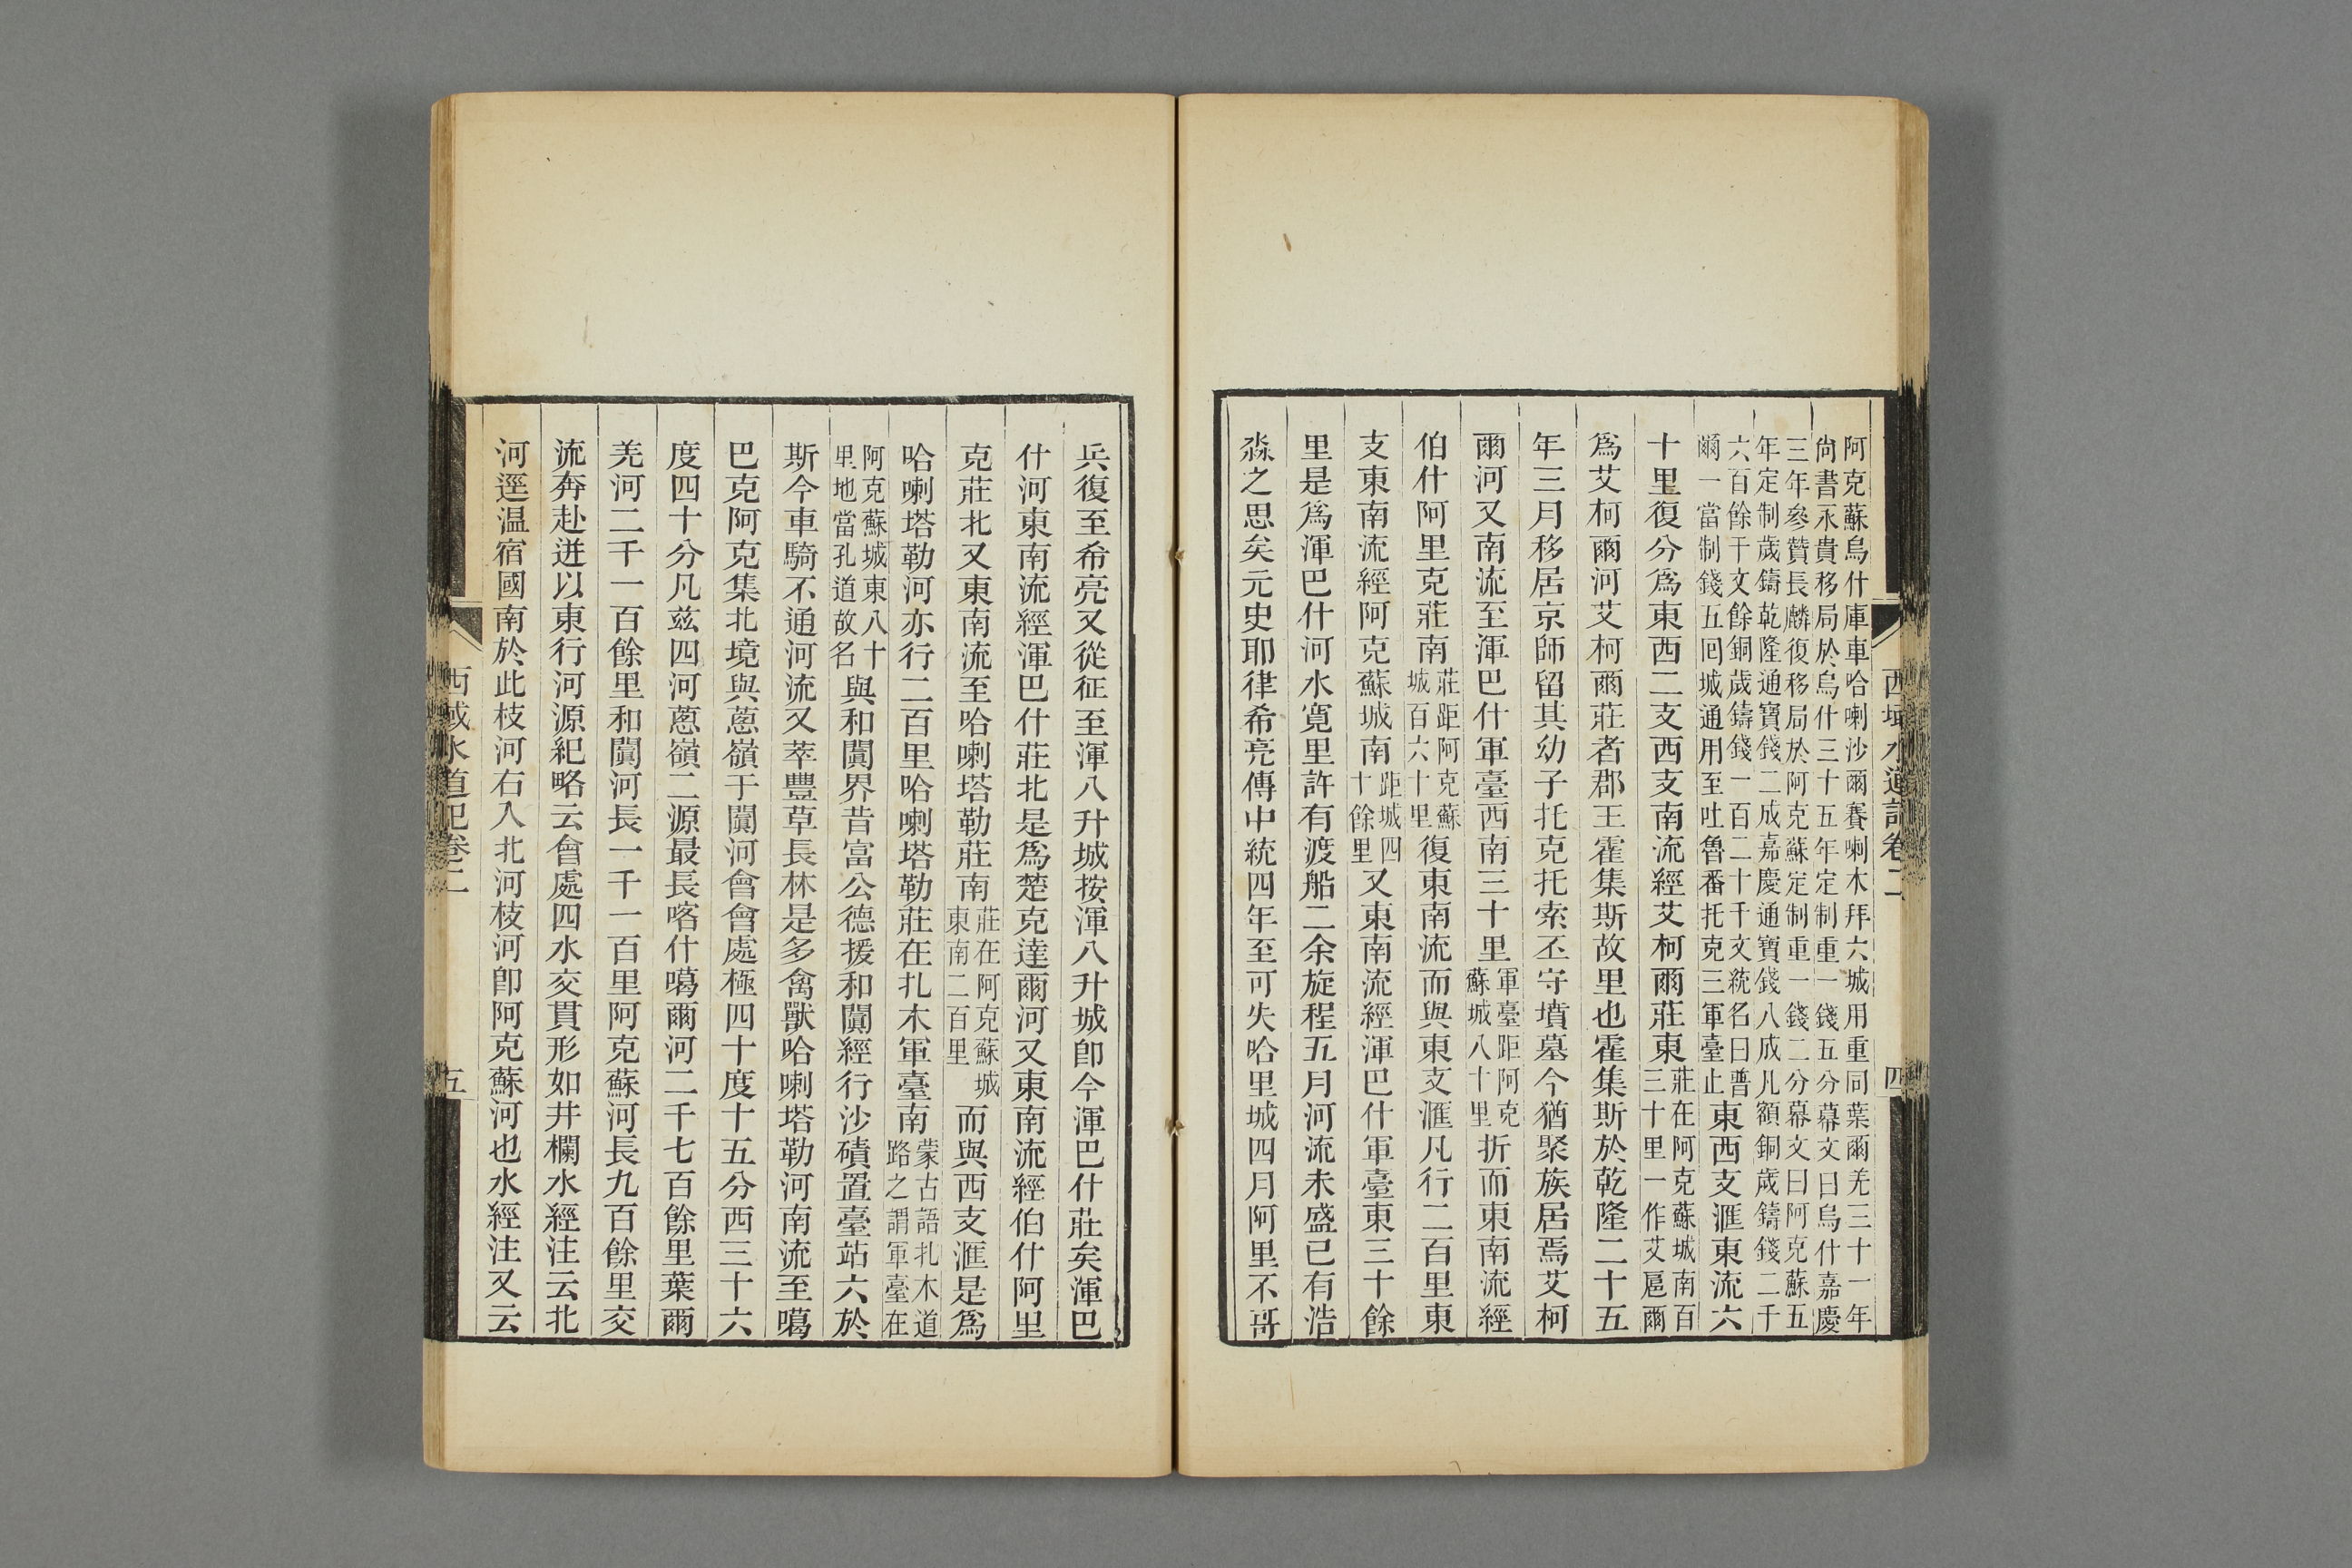 阿克蘇烏什庫車哈喇沙爾賽喇木拜六城用重同葉爾羌三十一年
尙書永貴移局於烏什三十五年定制重一錢五分幕文曰烏什嘉慶
三年參贊長麟復移局於阿克蘇定制重一錢二分幕文曰阿克蘇五
年定制歲鑄乾隆通寶錢二成嘉慶通寶錢八成凡額銅歲鑄錢二千
六百餘千文餘銅歲鑄錢一百二十千文統名曰普
爾一當制錢五回城通用至吐魯番托克三軍臺止
東西支滙東流六
十里復分爲東西二支西支南流經艾柯爾莊東
莊在阿克蘇城南百
三十里一作艾扈爾
爲艾柯爾河艾柯爾莊者郡王霍集斯故里也霍集斯於乾隆二十五
年三月移居京師留其幼子托克托索丕守墳墓今猶聚族居焉艾柯
爾河又南流至渾巴什軍臺西南三十里
軍臺距阿克
蘇城八十里
折而東南流經
伯什阿里克莊南
莊距阿克蘇
城百六十里
復東南流而與東支滙凡行二百里東
支東南流經阿克蘇城南
距城四
十餘里
又東南流經渾巴什軍臺東三十餘
里是爲渾巴什河水寬里許有渡船二余旋程五月河流未盛已有浩
淼之思矣元史耶律希亮傳中統四年至可失哈里城四月阿里不哥
西域水道記卷二
四
兵復至希亮又從征至渾八升城按渾八升城卽今渾巴什莊矣渾巴
什河東南流經渾巴什莊北是爲楚克達爾河又東南流經伯什阿里
克莊北又東南流至哈喇塔勒莊南
莊在阿克蘇城
東南二百里
而與西支滙是爲
哈喇塔勒河亦行二百里哈喇塔勒莊在扎木軍臺南
蒙古語扎木道
路之謂軍臺在
阿克蘇城東八十
里地當孔道故名
與和闐界昔富公德援和闐經行沙磧置臺站六於
斯今車騎不通河流又萃豐草長林是多禽獸哈喇塔勒河南流至噶
巴克阿克集北境與蔥嶺于闐河會會處極四十度十五分西三十六
度四十分凡茲四河蔥嶺二源最長喀什噶爾河二千七百餘里葉爾
羌河二千一百餘里和闐河長一千一百里阿克蘇河長九百餘里交
流奔赴迸以東行河源紀略云會處四水交貫形如井欄水經注云北
河逕温宿國南於此枝河右入北河枝河卽阿克蘇河也水經注又云
西域水道記卷二
五